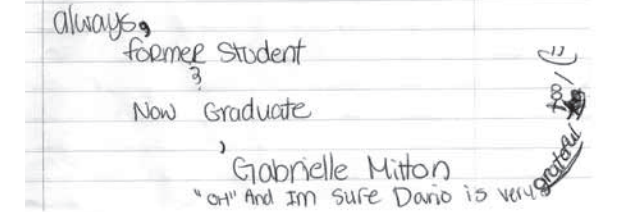 always,
former Student
&
Now Graduate
,
Gabrielle Mitton
"OH" And Im sure Dario is very grateful